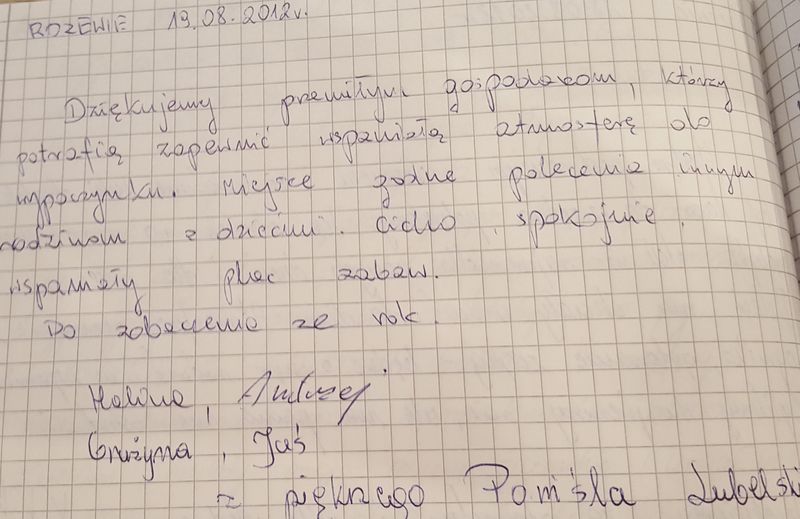 ROZEWIE 19.08.2012r.
Dziękujemy przemiłym gospodarzom, którzy
potrafią zapewnić wspaniałą atmosferę do
wypoczynku. Miejsce godne polecenia innym
rodzinom z dziećmi. Cicho, spokojnie,
wspaniały plac zabaw.
Do zobaczenia za rok.
Halina, Andrzej
Grażyna, Jaś
z pięknego Pomśla Lubelski